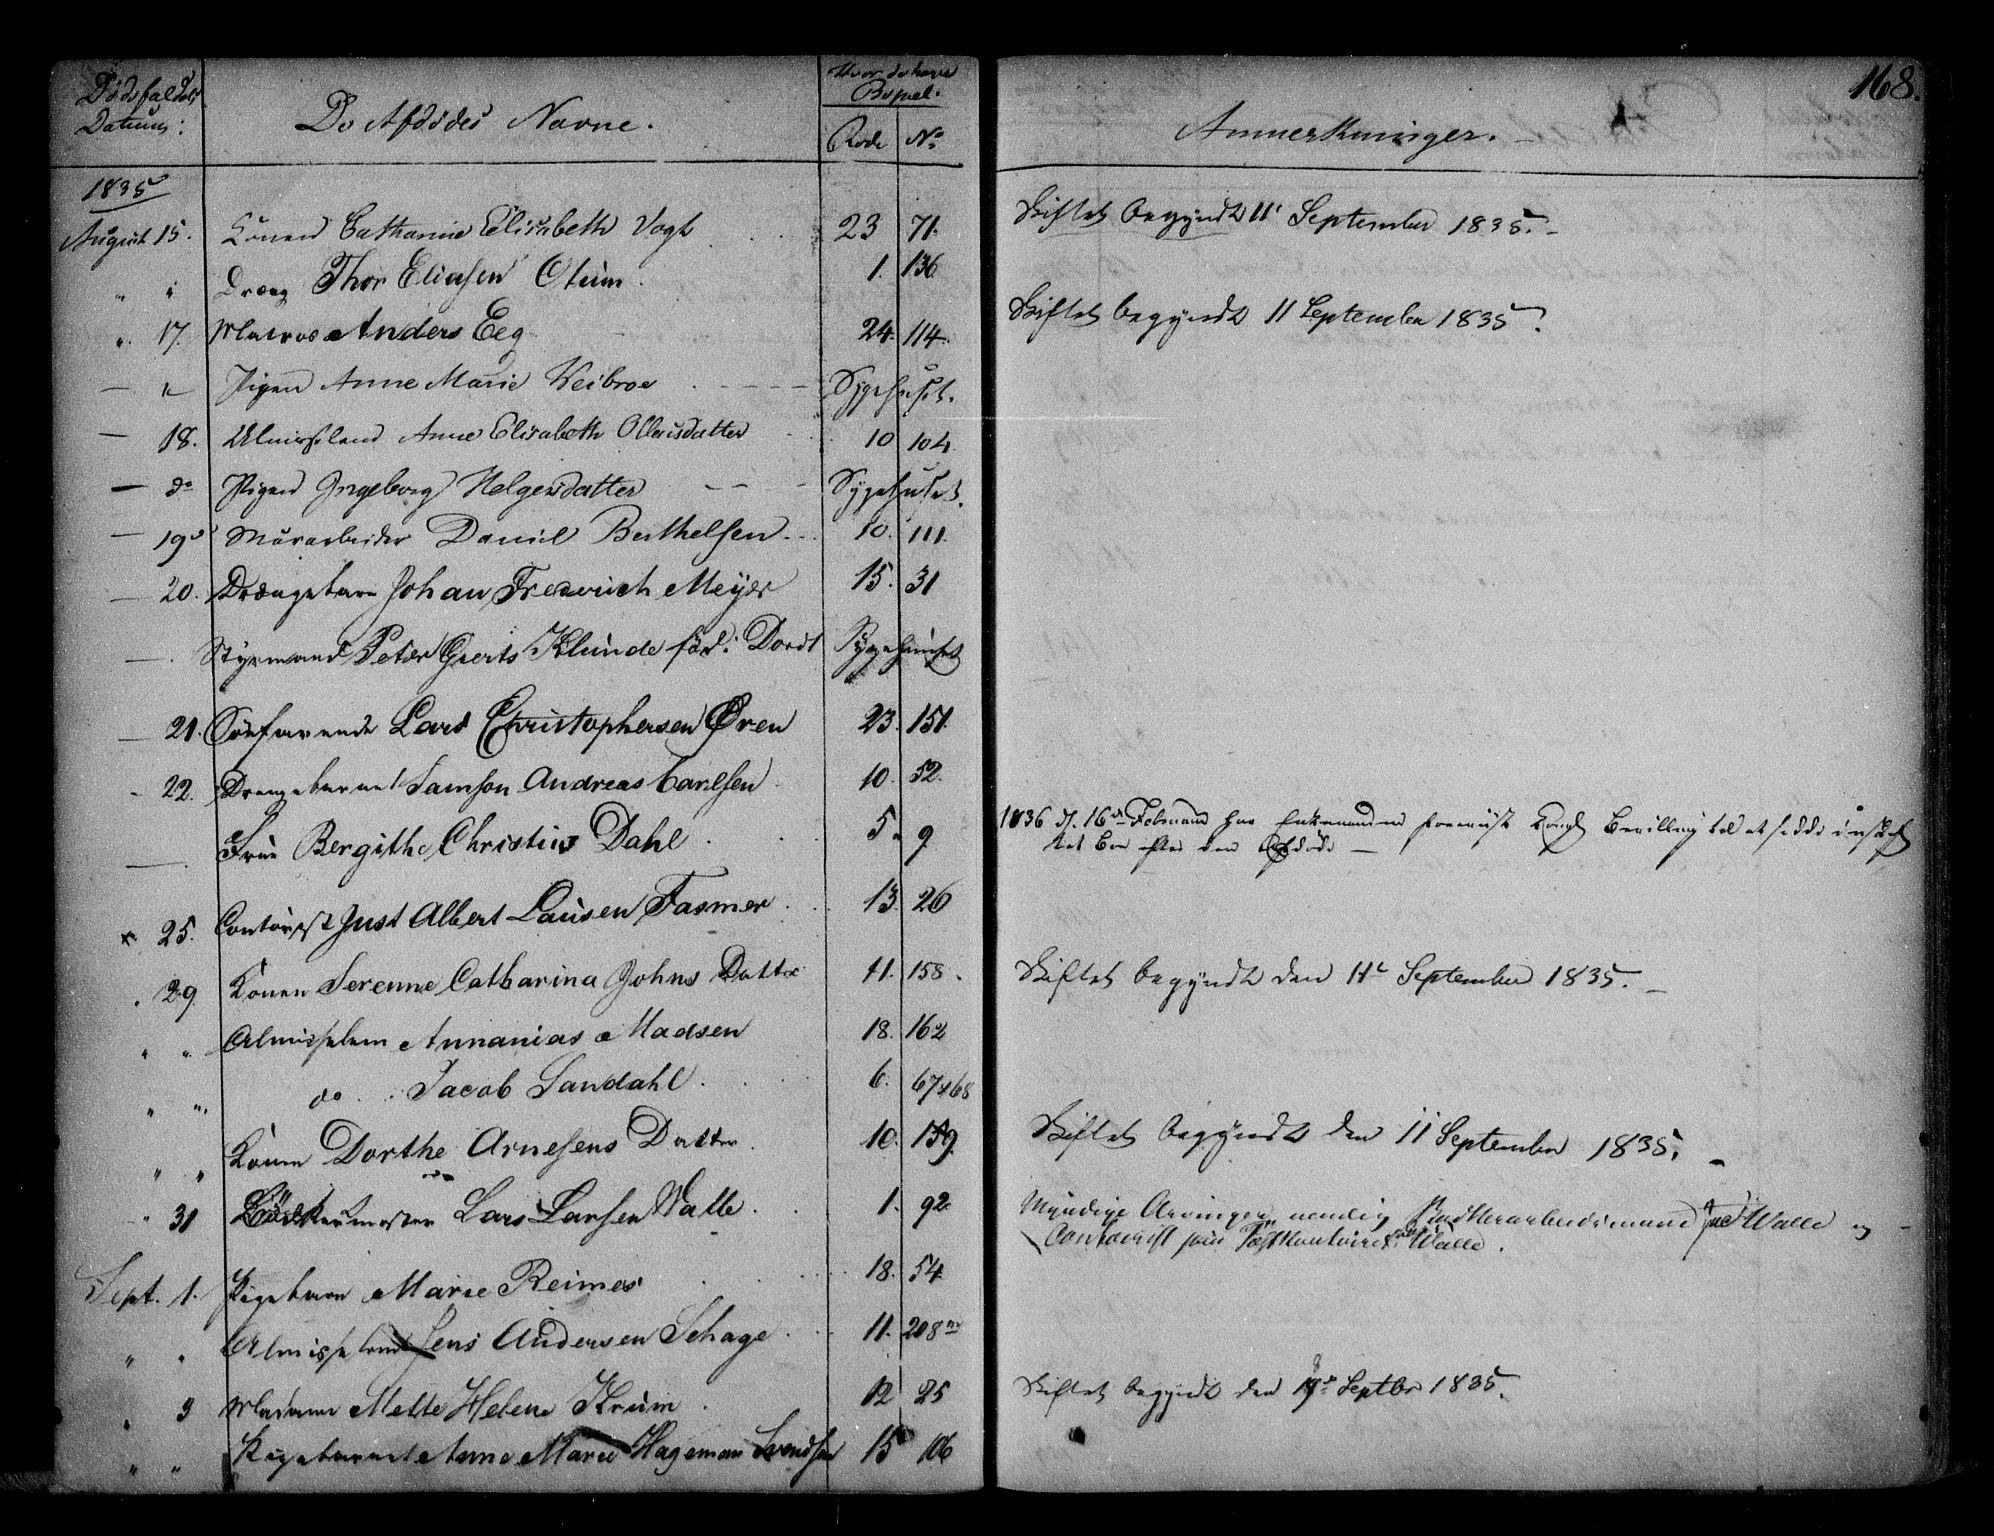 168.
Dødsfaldets Datum:
De Afdødes Navne.
Hvor de have Bopæl.
Rode No
Anmerkninger.
1835
August 15. Konen Catharine Elisabeth Vogt 23 71. Skiftet begyndt 11t September 1835.
" " Dreng Thor Eliasen Otum. 1. 136
" 17. Matros Anders Eeg 24. 114. Skiftet begyndt 11 September 1835.
— " Pigen Anne Marie Weibroe Sygehuset.
— 18. Almisselem Anne Elisabeth Ollensdatter 10 104.
— do Pigen Ingeborg Helgesdatter Sygehuset.
— 19 Murarbeider Daniel Berthelsen 10. 111.
— 20. Drængebarn Johan Frederich Meyer 15. 31
— Styrmand Peter Geerts Klunde fød: Dordt Sygehuuset
— 21. Søefarende Lars Christophersen Øren 23. 151.
- 22. Drengebarnet Samson Andreas Carlsen 10. 52.
— Frue Bergithe Christine Dahl 5. 9 1836 d. 16de Februar har Enkemanden foreviist Kongl Bevilling til at sidde i uskif
tet Boe efter den Afdøde —
25. Contorist Just Albert Lausen Fasmer 13. 26
. 29. Konen Serenne Catharina Johns Datter 11. 158. Skiftet begyndt den 11t September 1835.
" " Almisselem Annanias Madsen 18. 162
" " do Jacob Sandahl 6. 67+68
" " Konen Dorthe Arnesens Datter 10. 159. Skiftet begyndt den 11 September 1835.
" 31 Bødkermester Lars Larsen Walle 1. 92. Myndige Arvinger nemlig Walle og
Contorist Postkontoiret Walle.
Sept. 1. Pigebarn Marie Reimes 18. 54
" " Almisselem Jens Andersen Schage 11. 208
" 3 Madame Mette Helene Krüm 12 25 Skiftet begyndt den Septbr 1835.
" " Pigebarnet Anne Marie Hageman Svendsen 15 106